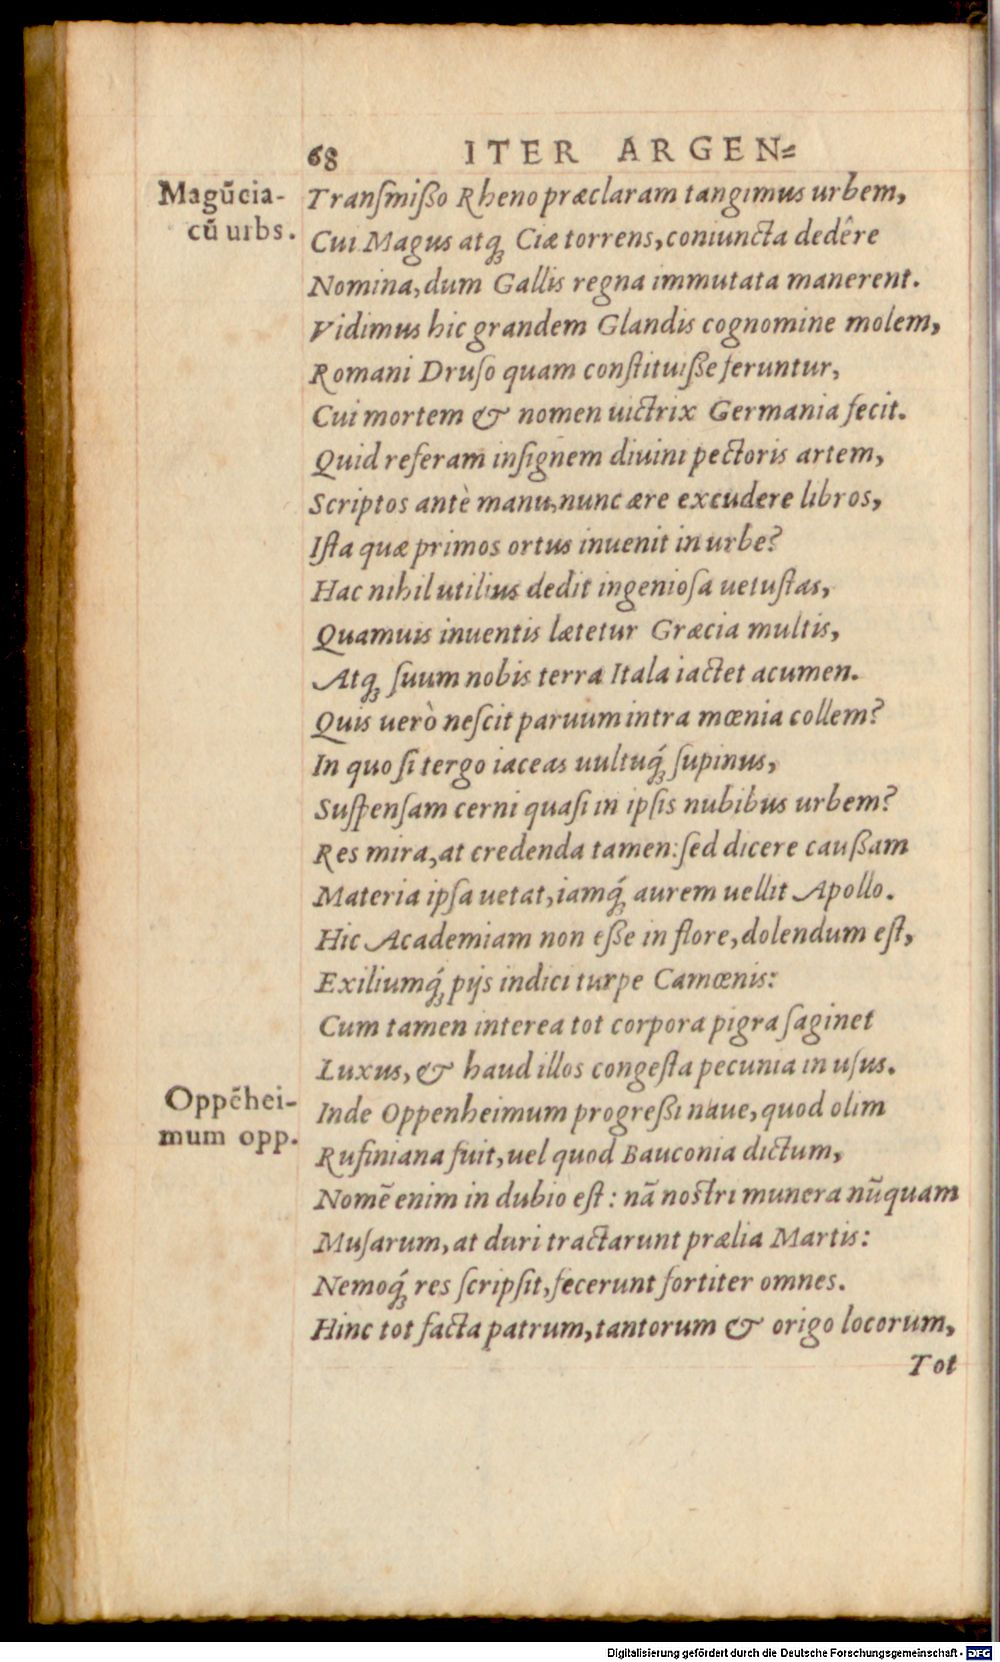 68 ITER ARGEN=
Magũcia-
cũ urbs.
Tranſmiſſo Rheno præclaram tangimus urbem,
Cui Magus atq́ꝫ Ciæ torrens, coniuncta dedêre
Nomina, dum Gallis regna immutata manerent.
Vidimus hic grandem Glandis cognomine molem,
Romani Druſo quam conſtituiſſe feruntur,
Cui mortem & nomen uictrix Germania fecit.
Quid referam inſignem diuini pectoris artem,
Scriptos antè manu, nunc ære excudere libros,
Iſta quæ primos ortus inuenit in urbe?
Hac nihil utilius dedit ingenioſa uetuſtas,
Quamuis inuentis lætetur Græcia multis,
Atqꝫ ſuum nobis terra Itala iactet acumen.
Quis uerò neſcit paruum intra mœnia collem?
In quo ſi tergo iaceas uultuq́ꝫ ſupinus,
Suſpenſam cerni quaſi in ipſis nubibus urbem?
Res mira, at credenda tamen: ſed dicere cauſſam
Materia ipſa uetat, iamq́ꝫ aurem uellit Apollo.
Hic Academiam non eſſe in flore, dolendum eſt,
Exiliumq́ꝫ pijs indici turpe Camœnis:
Cum tamen interea tot corpora pigra ſaginet
Luxus, & haud illos congeſta pecunia in uſus.
Oppẽhei-
mum opp.
Inde Oppenheimum progreſſi naue, quod olim
Rufiniana fuit, uel quod Bauconia dictum,
Nomẽ enim in dubio eſt: nã noſtri munera nũquam
Muſarum, at duri tractarunt prælia Martis:
Nemoq́ꝫ res ſcripſit, fecerunt fortiter omnes.
Hinc tot facta patrum, tantorum & origo locorum,
Tot
Digitalisierung gefördert durch die Deutsche Forschungsgemeinschaft - DFG